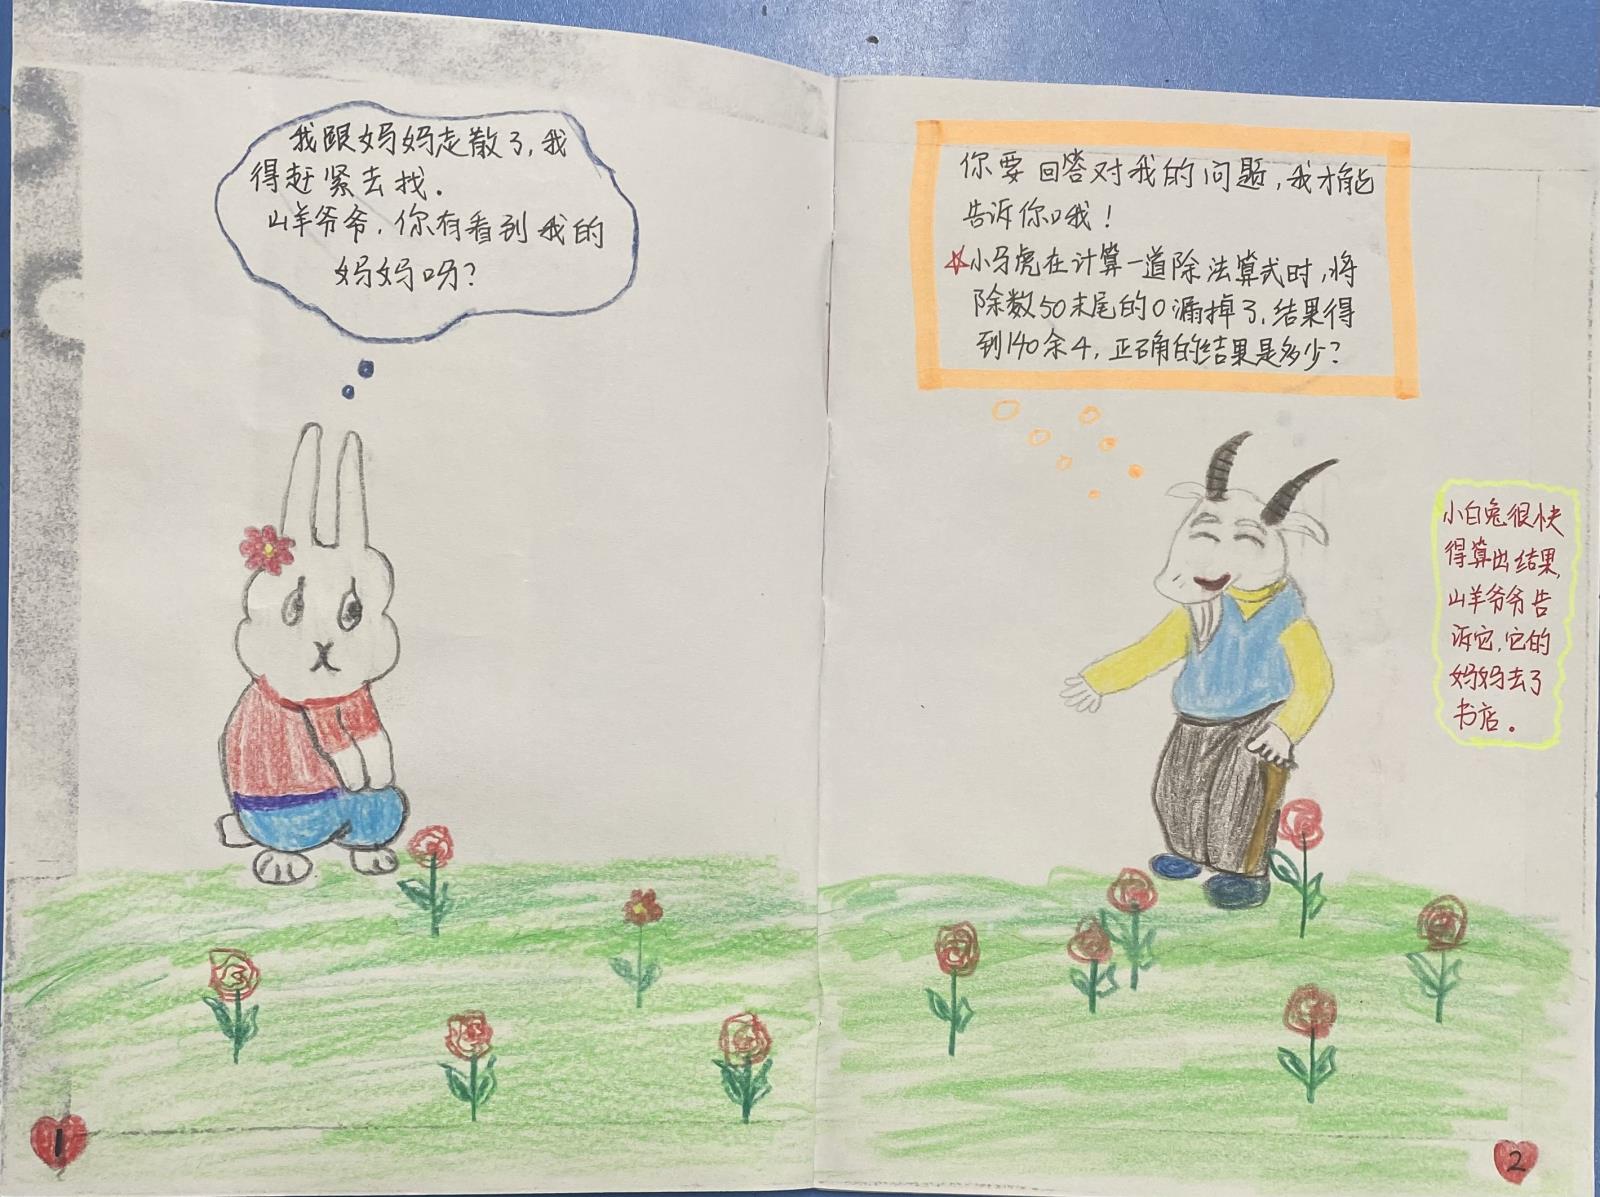 我跟妈妈走散了,我
得赶紧去找.
山羊爷爷,你有看到我的
妈妈吗?
1
你要回答对我的问题,我才能
告诉你哦!
☆小马虎在计算一道除法算式时,将
除数50末尾的0漏掉了,结果得
到140余4,正确的结果是多少?
小白兔很快
得算出结果,
山羊爷爷告
诉它,它的
妈妈去了
书店。
2